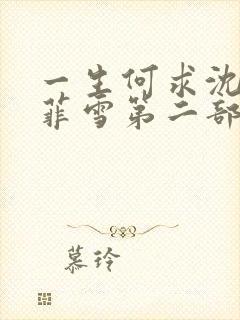 一生何求沈
菲雪第二部
慕玲